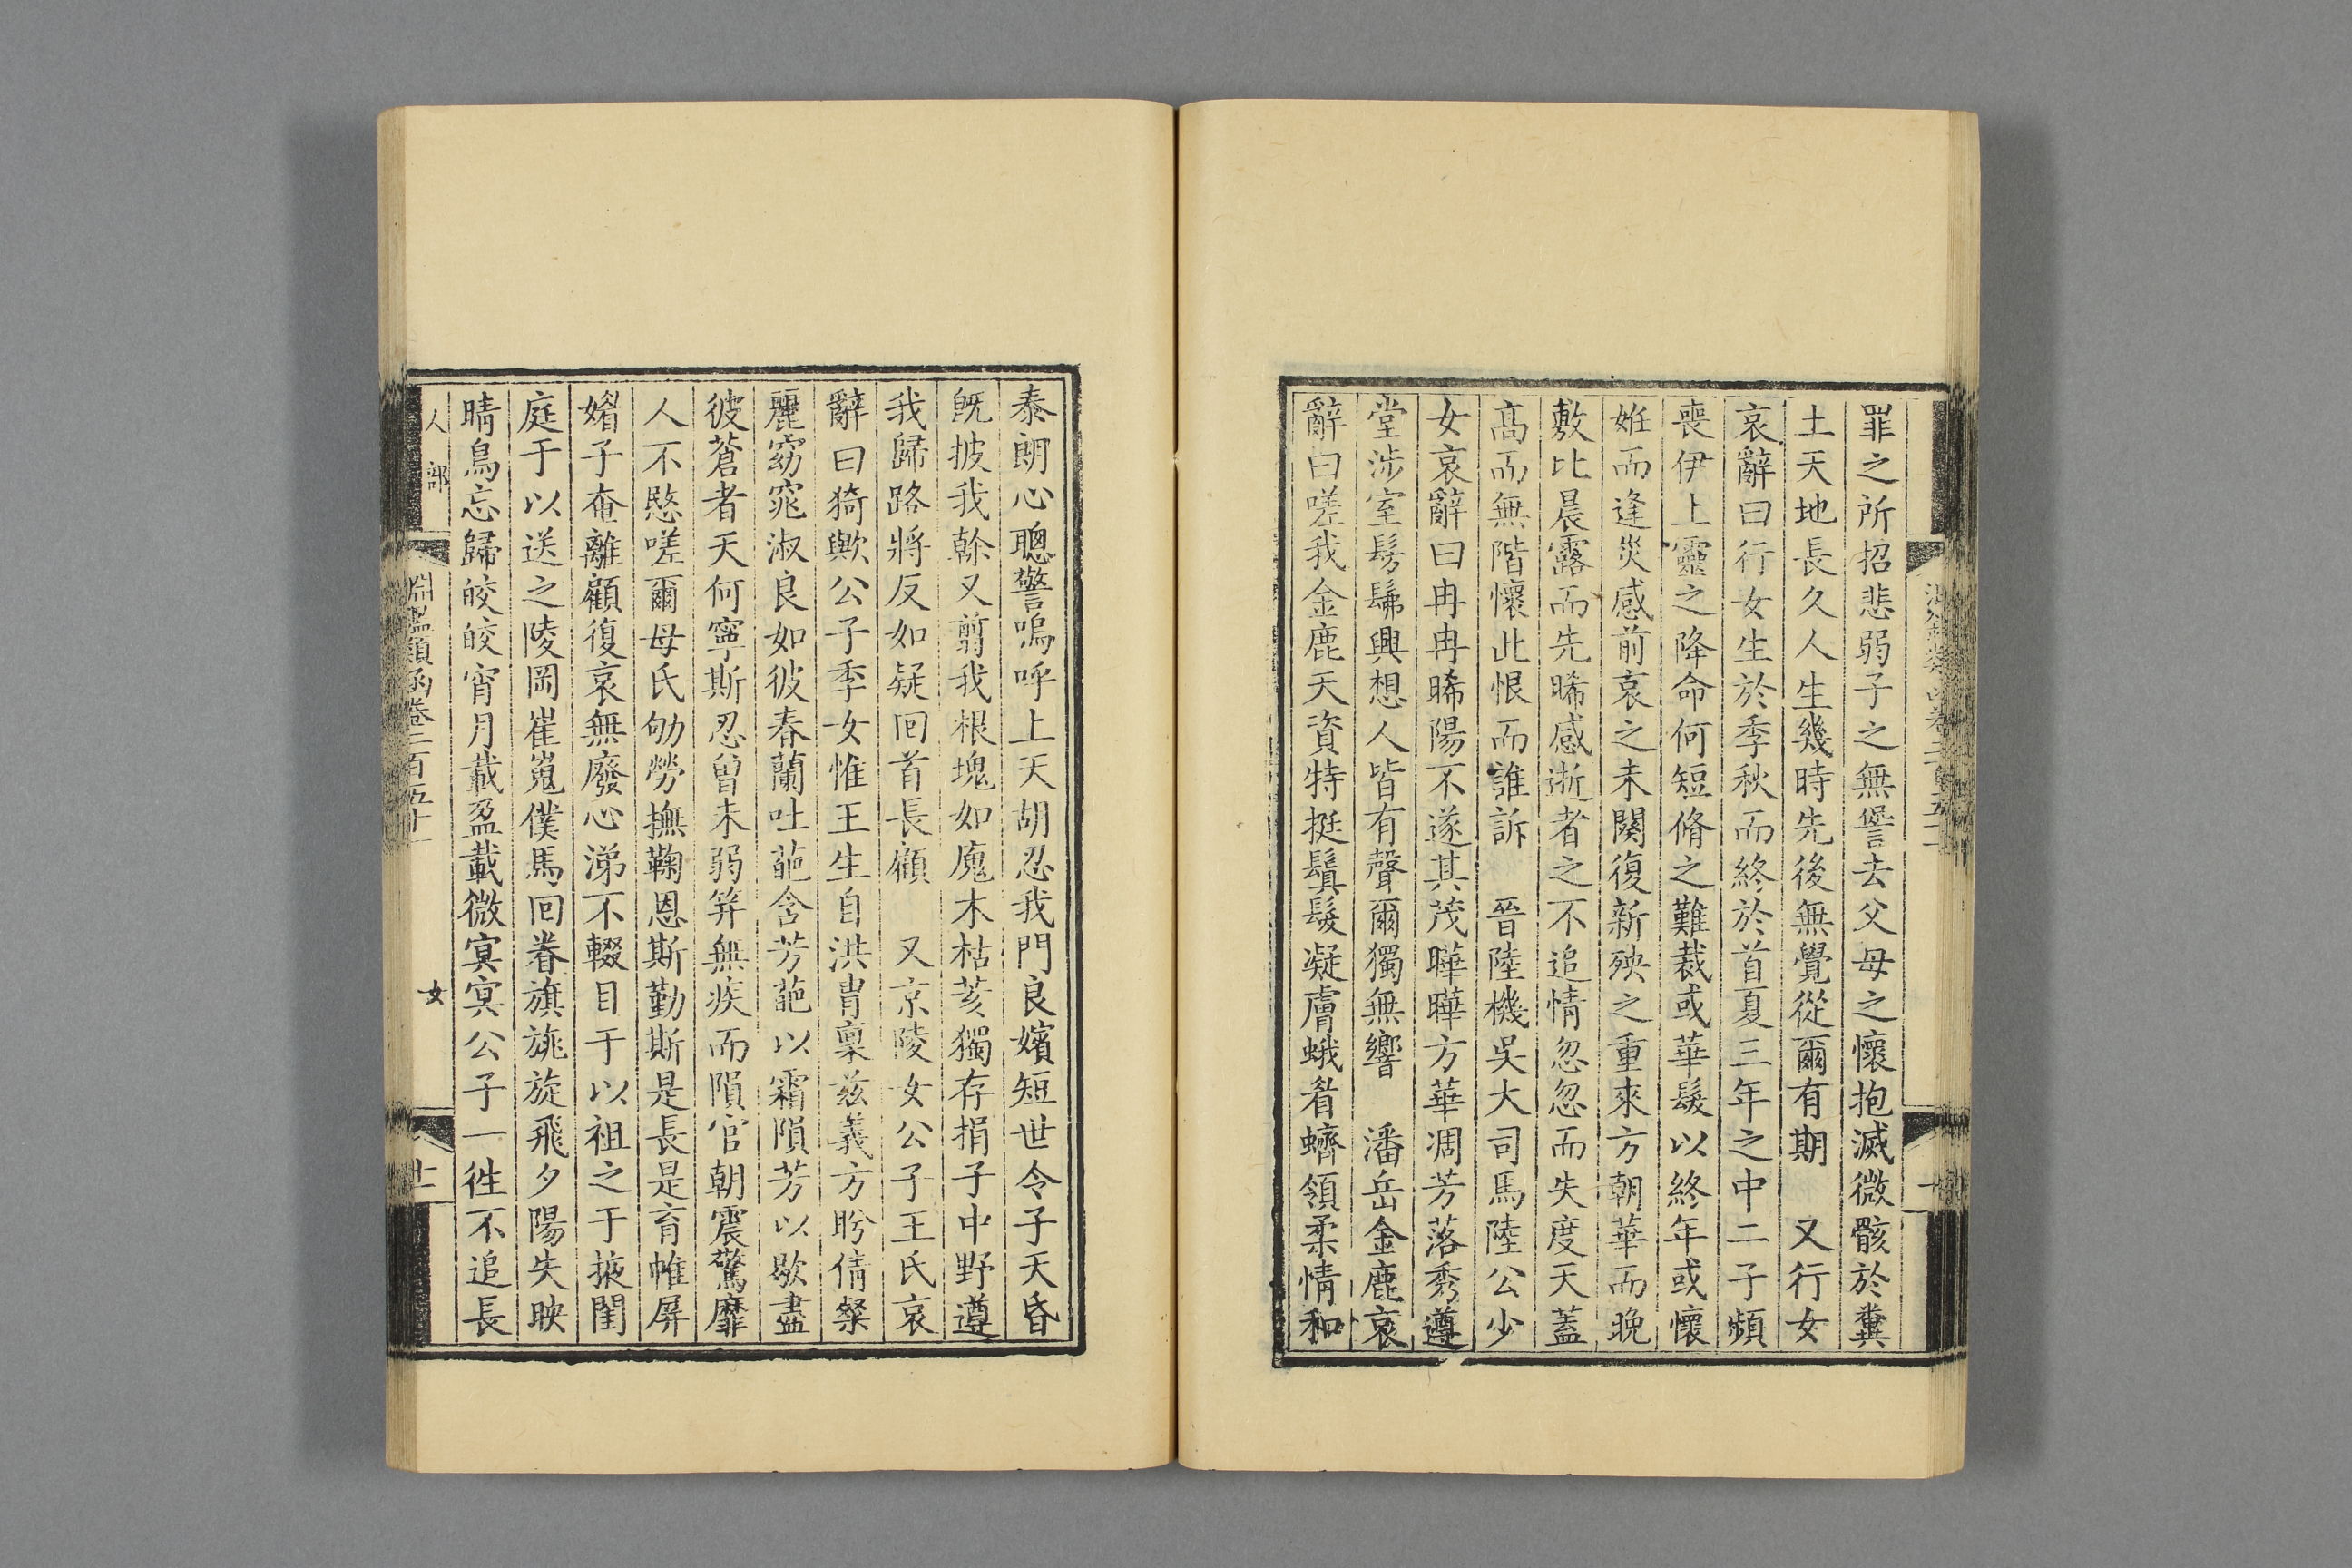 罪之所招悲弱子之無諐去父母之懷抱滅微骸於糞
土天地長久人生幾時先後無覺從爾有期 又行女
哀辭曰行女生於季秋而終於首夏三年之中二子頻
喪伊上靈之降命何短脩之難裁或華髮以終年或懷
姙而逢災感前哀之未闋復新殃之重來方朝華而晚
敷比晨露而先晞感逝者之不追情忽忽而失度天蓋
高而無階懷此恨而誰訴 晉陸機吳大司馬陸公少
女哀辭曰冉冉晞陽不遂其茂曄曄方華凋芳落秀遵
堂涉室髣髴興想人皆有聲爾獨無響 潘岳金鹿哀
辭曰嗟我金鹿天資特挺鬒髮凝膚蛾眉蠐領柔情和
泰朗心聰警嗚呼上天胡忍我門良嬪短世令子夭昏
既披我幹又剪我根塊如瘣木枯荄獨存捐子中野遵
我歸路將反如疑回首長顧 又京陵女公子王氏哀
辭曰猗歟公子季女惟王生自洪胄稟茲義方盻倩粲
麗窈窕淑良如彼春蘭吐葩含芳葩以霜隕芳以歇盡
彼蒼者天何寧斯忍曾未弱笄無疾而隕官朝震驚靡
人不慜嗟爾母氏劬勞撫鞠恩斯勤斯是長是育帷屏
媚子奄離顧復哀無廢心涕不輟目于以祖之于掖閨
庭于以送之陵岡崔嵬僕馬回眷旗旐旋飛夕陽失映
晴鳥忘歸皎皎宵月載盈載微冥冥公子一徃不追長
人部 淵鑑類函卷二百五十 女 十一